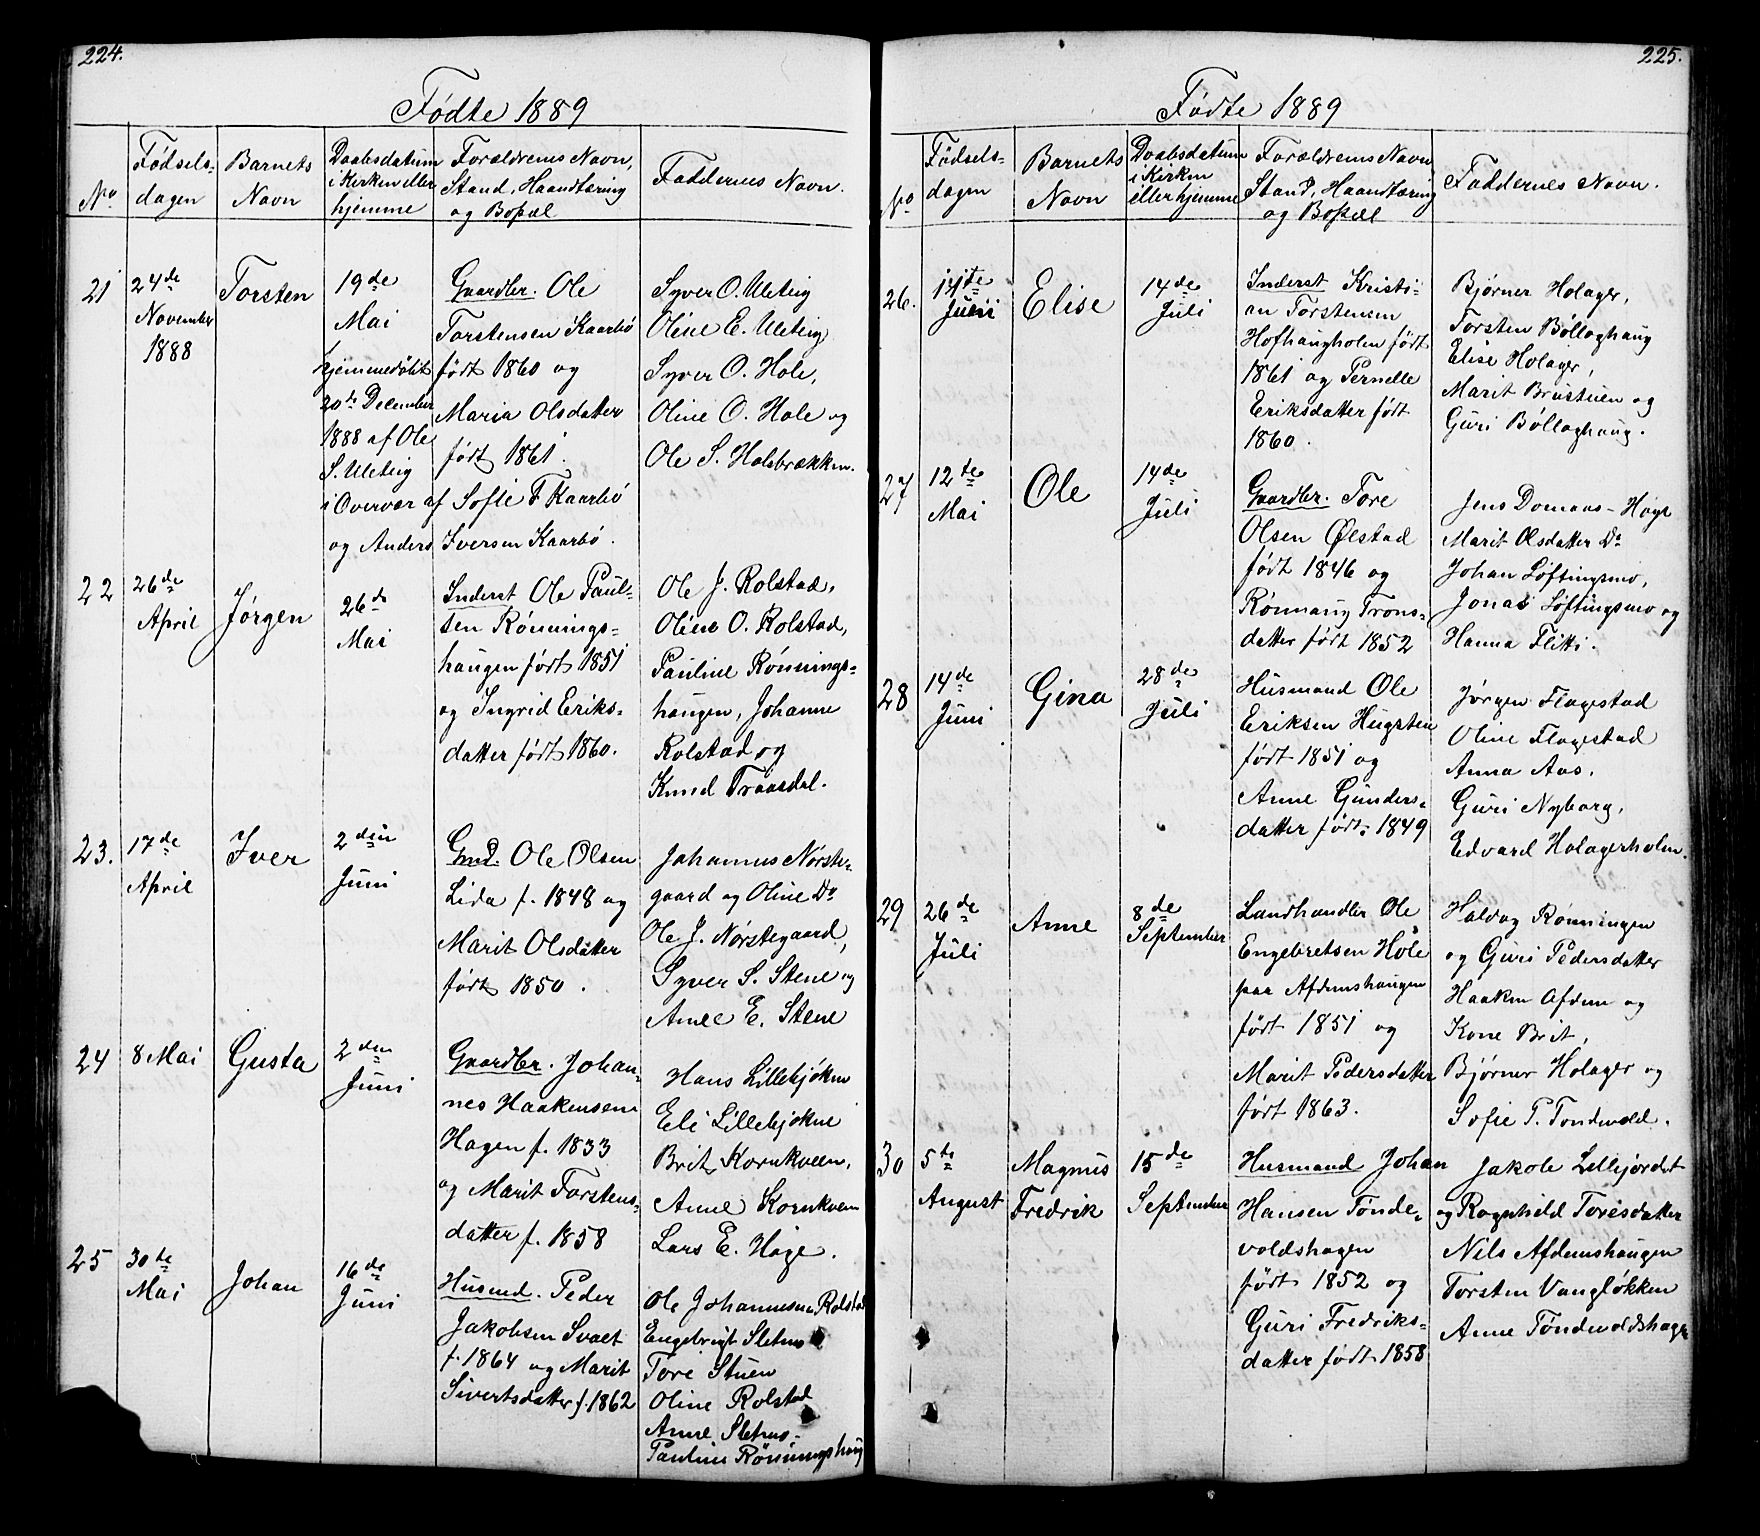 224.
Fødte 1889
No
Fødsels-
dagen
Barnets
Navn
Daabsdatum
i Kirken eller
hjemme
Forældrenes Navn,
Stand, Haandtæring
og Bopæl
Faddernes Navn.
21
24de
November
1888
Torsten
19de
Mai
hjemmedøbt
20de December
1888 af Ole
S. Uleteig
i Overvær af Sofie T Kaarbø
og Anders Iversen Kaarbø.
Gaardbr. Ole
Torstensen Kaarbø
født 1860 og
Maria Olsdatter
født 1861.
Syver O. Uleteig
Oline E. Uleteig
Syver O. Hole,
Oline O. Hole og
Ole S. Holsbrækken.
22
26de
April
Jørgen
26de
Mai
Inderst Ole Paul-
sen Rønnings-
haugen født 1851
og Ingrid Eriks-
datter født 1860.
Ole J. Rolstad,
Oline O. Rolstad,
Pauline Rønnings-
haugen, Johanne
Rolstad og
Knud Traasdal.
23.
17de
April
Iver
2den
Juni
Gmd. Ole Olsen
Lida f. 1848 og
Marit Olsdatter
født 1850.
Johannes Nørste-
gaard og Oline Do
Ole J. Nørstegaard,
Syver S. Stene og
Anne E. Stene
24
8 Mai
Gusta
2den
Juni
Gaardbr. Johan-
nes Haakensen
Hagen f. 1833
og Marit Torstens-
datter f. 1858
Hans Lillebjøkne
Eli Lillebjøkne
Brit Kornkveen,
Anne Kornkveen
Lars E. Høge.
25
30te
Mai
Johan
16de
Juni
Husmd. Peder
Jakobsen Svaet
f. 1864 og Marit
Sivertsdatter f. 1862
Ole Johannesen Rolstad
Engebrigt Sletmo
Tore Stuen
Oline Rolstad
Anne Sletmo
Pauline Rønningshaug
225.
Fødte 1889
No
Fødsels-
dagen
Barnets
Navn
Daabsdatum
i Kirken
eller hjemme
Forældrenes Navn
Stand, Haandtæring
og Bopæl
Faddernes Navn.
26.
11te
Juni
Elise
14de
Juli
Inderst Kristi-
an Torstensen
Hofhaugholen født
1861 og Pernelle
Eriksdatter født
1860.
Bjørner Holager,
Torsten Bøllaghaug
Elise Holager,
Marit Brustuen og
Guri Bøllaghaug.
27
12te
Mai
Ole
14de
Juli
Gaardbr. Tore
Olsen Ølstad
født 1846 og
Rønnaug Trons-
datter født 1852
Jens Domaas-Høge
Marit Olsdatter Do
Johan Løftingsmo,
Jonas Løftingsmo og
Hanna Flitti.
28
14de
Juni
Gina
28de
Juli
Husmand Ole
Eriksen Hugsten
født 1851 og
Anne Gunders-
datter født 1849
Jørgen Flagestad
Oline Flagestad
Anna Aas.
Guri Nyborg,
Edvard Holagerholen.
29
26de
Juli
Anne
8de
September
Landhandler Ole
Engebretsen Hole
paa Afdemshaugen
født 1851 og
Marit Pedersdatter
født 1863.
Haldog Rønningen
og Guri Pedersdatter
Haaken Afdem og
Kone Brit,
Bjørner Holager og
Sofie P. Tondevold.
30
5te
August
Magnus
Fredrik
15de
September
Husmand Johan
Hansen Tønde-
voldshagen
født 1852 og
Guri Fredriks-
datter født 1858
Jakob Lillejordet
og Ragnhild Toresdatter
Nils Afdemshaugen
Torsten Vangløkken
Anne Tøndevoldshage